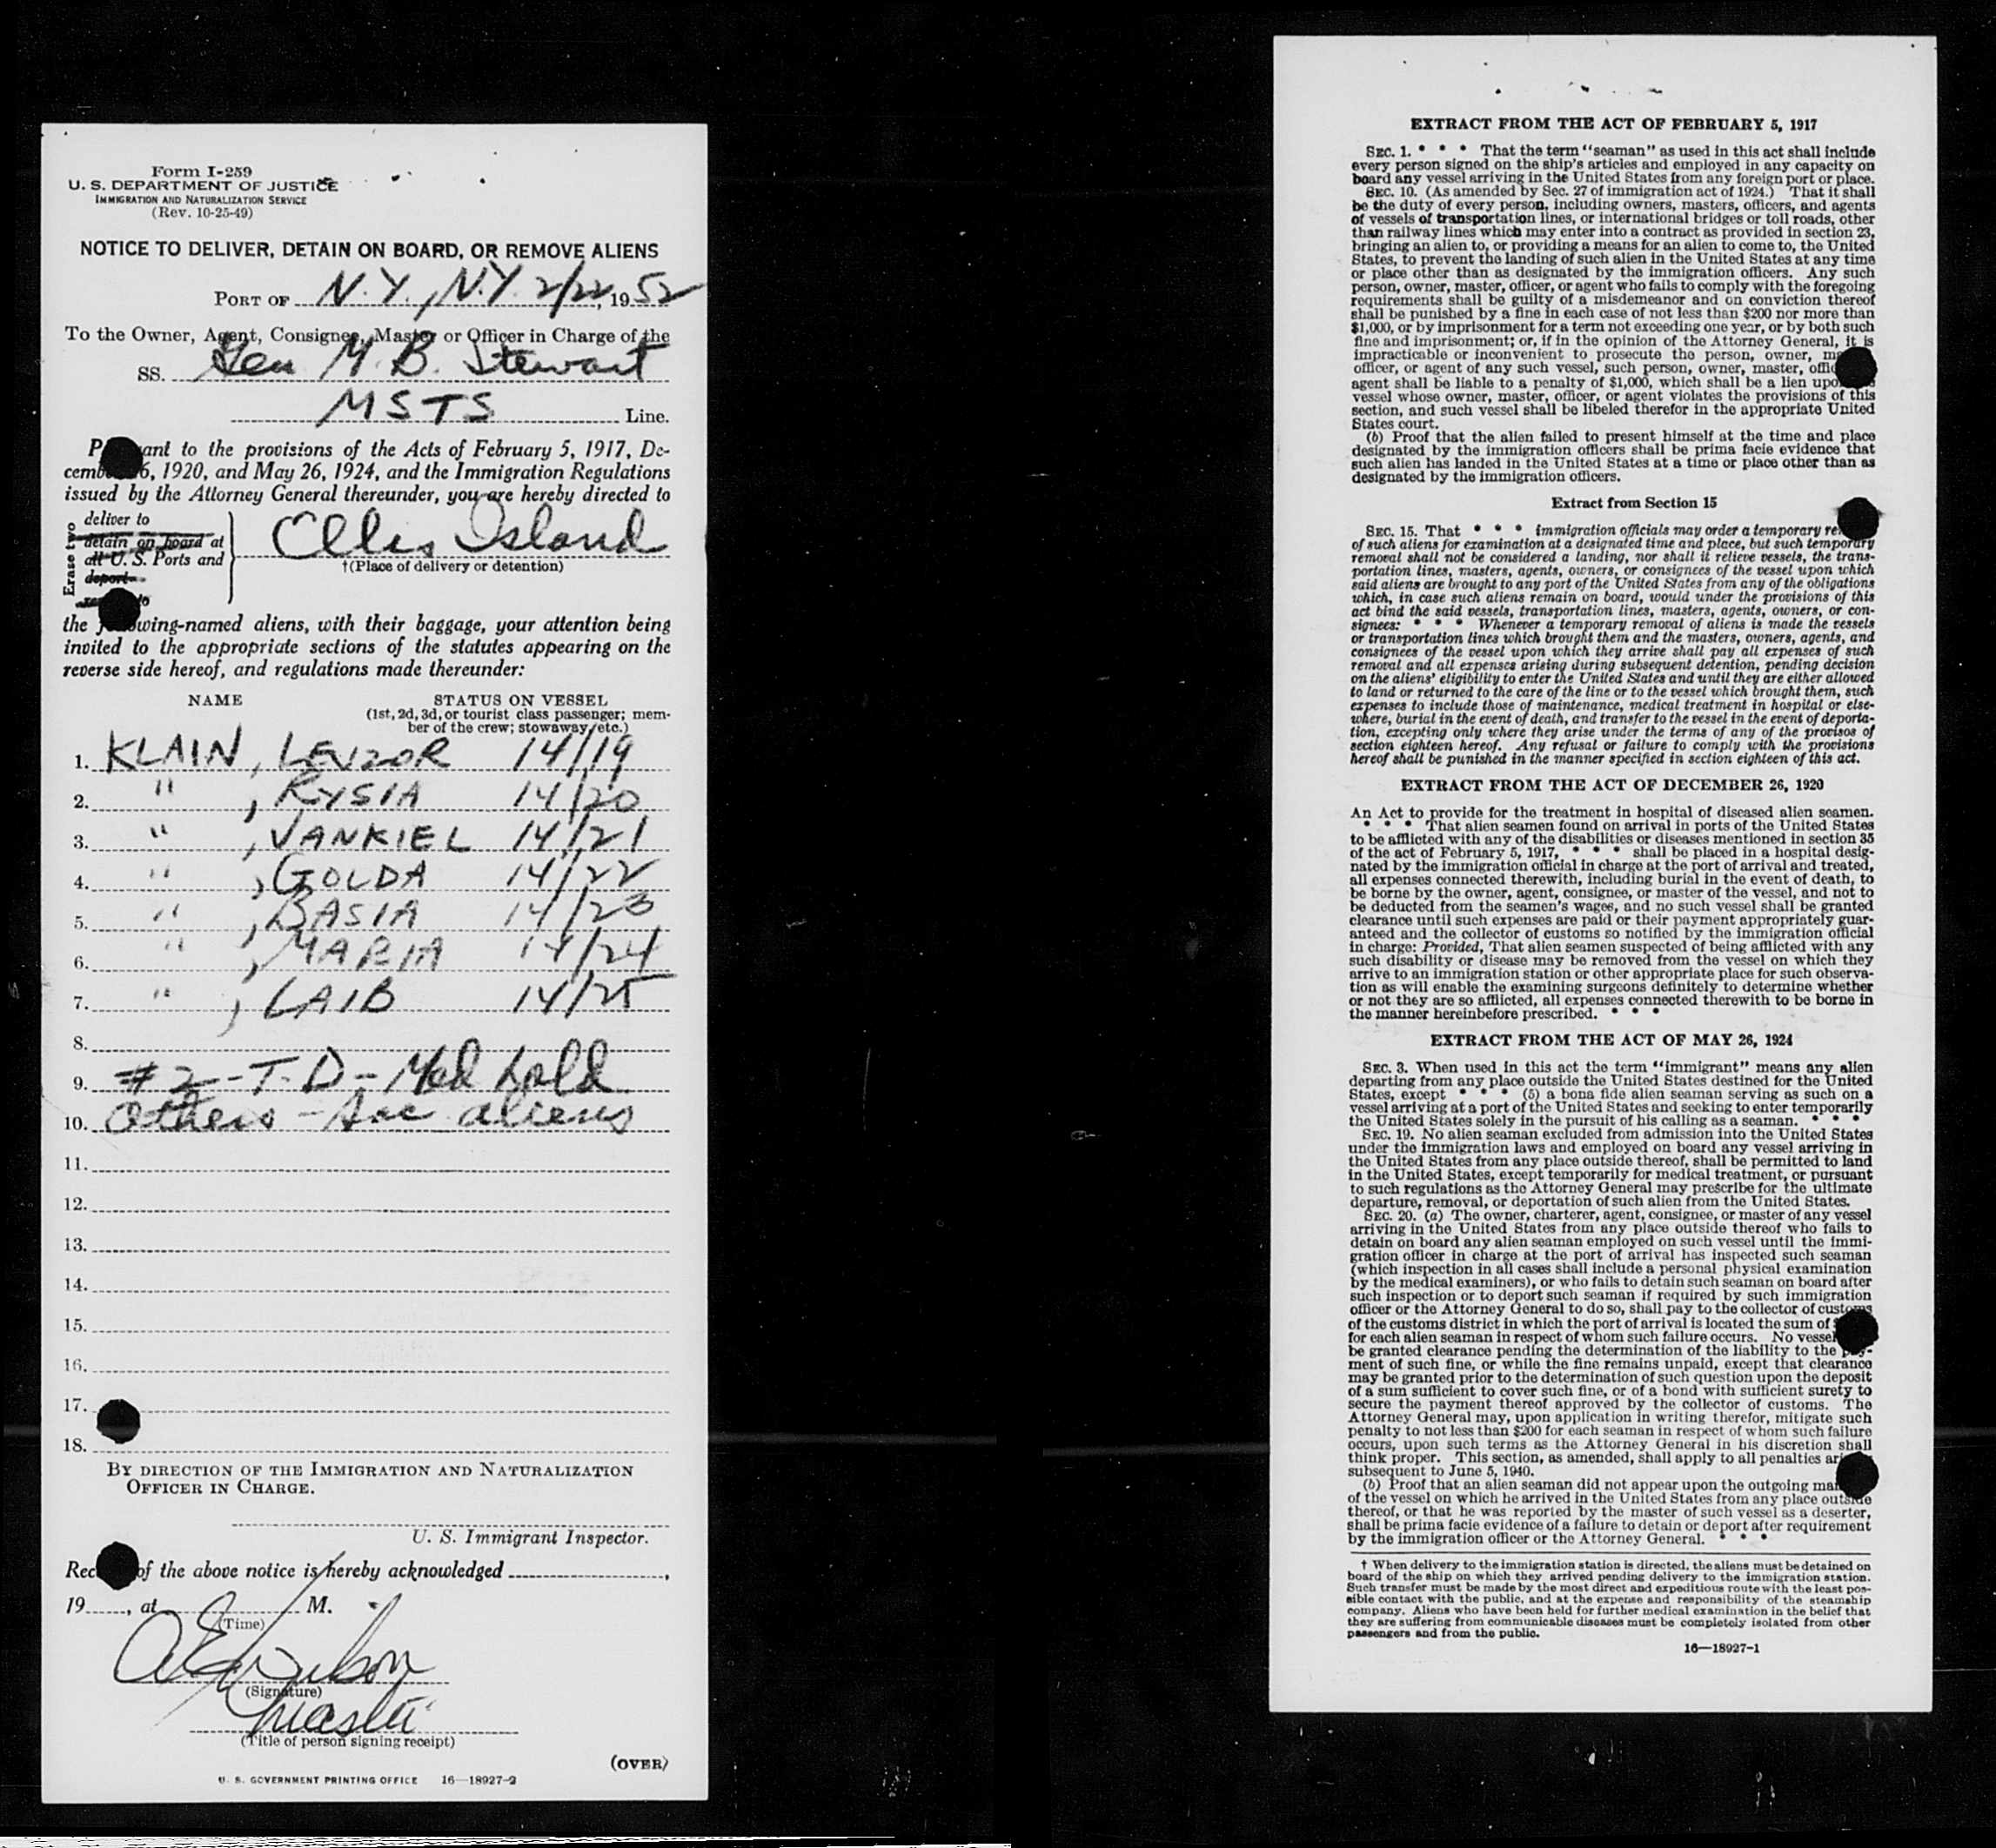 Form I-259
U. S. DEPARTMENT OF JUSTICE
IMMIGRATION AND NATURALIZATION SERVICE
(Rev. 10-25-49)
NOTICE TO DELIVER, DETAIN ON BOARD, OR REMOVE ALIENS
PORT OF N.Y., N.Y. 2/22, 1952
To the Owner, Agent, Consignee, Master or Officer in Charge of the
SS. Gen M. B. Stewart
MSTS Line.
P ant to the provisions of the Acts of February 5, 1917, De-
cemb 6, 1920, and May 26, 1924, and the Immigration Regulations
issued by the Attorney General thereunder, you are hereby directed to
Erase two
deliver to
detain on board at
all U. S. Ports and
deport
to
Ellis Island
†(Place of delivery or detention)
the f wing-named aliens, with their baggage, your attention being
invited to the appropriate sections of the statutes appearing on the
reverse side hereof, and regulations made thereunder:
NAME STATUS ON VESSEL
(1st, 2d, 3d, or tourist class passenger; mem-
ber of the crew; stowaway, etc.)
1. KLAIN, LEVZOR 14/19
2. " , RYSIA 14/20
3. " , VANKIEL 14/21
4. " , GOLDA 14/22
5. " , BASIA 14/23
6. " , MARIA 14/24
7. " , LAIB 14/25
8.
9. #2 - T.D - Med hold
10. Others - Acc aliens
11.
12.
13.
14.
15.
16.
17.
18.
BY DIRECTION OF THE IMMIGRATION AND NATURALIZATION
OFFICER IN CHARGE.
U. S. Immigrant Inspector.
Rec of the above notice is hereby acknowledged ,
19 , at M.
(Time)
(Signature)
Master
(Title of person signing receipt)
(OVER)
U. S. GOVERNMENT PRINTING OFFICE 16—18927-2
EXTRACT FROM THE ACT OF FEBRUARY 5, 1917
SEC. 1. * * * That the term "seaman" as used in this act shall include
every person signed on the ship's articles and employed in any capacity on
board any vessel arriving in the United States from any foreign port or place.
SEC. 10. (As amended by Sec. 27 of immigration act of 1924.) That it shall
be the duty of every person, including owners, masters, officers, and agents
of vessels of transportation lines, or international bridges or toll roads, other
than railway lines which may enter into a contract as provided in section 23,
bringing an alien to, or providing a means for an alien to come to, the United
States, to prevent the landing of such alien in the United States at any time
or place other than as designated by the immigration officers. Any such
person, owner, master, officer, or agent who fails to comply with the foregoing
requirements shall be guilty of a misdemeanor and on conviction thereof
shall be punished by a fine in each case of not less than $200 nor more than
$1,000, or by imprisonment for a term not exceeding one year, or by both such
fine and imprisonment; or, if in the opinion of the Attorney General, it is
impracticable or inconvenient to prosecute the person, owner, m
officer, or agent of any such vessel, such person, owner, master, offic
agent shall be liable to a penalty of $1,000, which shall be a lien upo
vessel whose owner, master, officer, or agent violates the provisions of this
section, and such vessel shall be libeled therefor in the appropriate United
States court.
(b) Proof that the alien failed to present himself at the time and place
designated by the immigration officers shall be prima facie evidence that
such alien has landed in the United States at a time or place other than as
designated by the immigration officers.
Extract from Section 15
SEC. 15. That * * * immigration officials may order a temporary re
of such aliens for examination at a designated time and place, but such temporary
removal shall not be considered a landing, nor shall it relieve vessels, the trans-
portation lines, masters, agents, owners, or consignees of the vessel upon which
said aliens are brought to any port of the United States from any of the obligations
which, in case such aliens remain on board, would under the provisions of this
act bind the said vessels, transportation lines, masters, agents, owners, or con-
signees: * * * Whenever a temporary removal of aliens is made the vessels
or transportation lines which brought them and the masters, owners, agents, and
consignees of the vessel upon which they arrive shall pay all expenses of such
removal and all expenses arising during subsequent detention, pending decision
on the aliens' eligibility to enter the United States and until they are either allowed
to land or returned to the care of the line or to the vessel which brought them, such
expenses to include those of maintenance, medical treatment in hospital or else-
where, burial in the event of death, and transfer to the vessel in the event of deporta-
tion, excepting only where they arise under the terms of any of the provisos of
section eighteen hereof. Any refusal or failure to comply with the provisions
hereof shall be punished in the manner specified in section eighteen of this act.
EXTRACT FROM THE ACT OF DECEMBER 26, 1920
An Act to provide for the treatment in hospital of diseased alien seamen.
* * * That alien seamen found on arrival in ports of the United States
to be afflicted with any of the disabilities or diseases mentioned in section 35
of the act of February 5, 1917, * * * shall be placed in a hospital desig-
nated by the immigration official in charge at the port of arrival and treated,
all expenses connected therewith, including burial in the event of death, to
be borne by the owner, agent, consignee, or master of the vessel, and not to
be deducted from the seamen's wages, and no such vessel shall be granted
clearance until such expenses are paid or their payment appropriately guar-
anteed and the collector of customs so notified by the immigration official
in charge: Provided, That alien seamen suspected of being afflicted with any
such disability or disease may be removed from the vessel on which they
arrive to an immigration station or other appropriate place for such observa-
tion as will enable the examining surgeons definitely to determine whether
or not they are so afflicted, all expenses connected therewith to be borne in
the manner hereinbefore prescribed. * * *
EXTRACT FROM THE ACT OF MAY 26, 1924
SEC. 3. When used in this act the term "immigrant" means any alien
departing from any place outside the United States destined for the United
States, except * * * (5) a bona fide alien seaman serving as such on a
vessel arriving at a port of the United States and seeking to enter temporarily
the United States solely in the pursuit of his calling as a seaman. * * *
SEC. 19. No alien seaman excluded from admission into the United States
under the immigration laws and employed on board any vessel arriving in
the United States from any place outside thereof, shall be permitted to land
in the United States, except temporarily for medical treatment, or pursuant
to such regulations as the Attorney General may prescribe for the ultimate
departure, removal, or deportation of such alien from the United States.
SEC. 20. (a) The owner, charterer, agent, consignee, or master of any vessel
arriving in the United States from any place outside thereof who fails to
detain on board any alien seaman employed on such vessel until the immi-
gration officer in charge at the port of arrival has inspected such seaman
(which inspection in all cases shall include a personal physical examination
by the medical examiners), or who fails to detain such seaman on board after
such inspection or to deport such seaman if required by such immigration
officer or the Attorney General to do so, shall pay to the collector of customs
of the customs district in which the port of arrival is located the sum of
for each alien seaman in respect of whom such failure occurs. No vessel
be granted clearance pending the determination of the liability to the pay-
ment of such fine, or while the fine remains unpaid, except that clearance
may be granted prior to the determination of such question upon the deposit
of a sum sufficient to cover such fine, or of a bond with sufficient surety to
secure the payment thereof approved by the collector of customs. The
Attorney General may, upon application in writing therefor, mitigate such
penalty to not less than $200 for each seaman in respect of whom such failure
occurs, upon such terms as the Attorney General in his discretion shall
think proper. This section, as amended, shall apply to all penalties ar
subsequent to June 5, 1940.
(b) Proof that an alien seaman did not appear upon the outgoing ma
of the vessel on which he arrived in the United States from any place outside
thereof, or that he was reported by the master of such vessel as a deserter,
shall be prima facie evidence of a failure to detain or deport after requirement
by the immigration officer or the Attorney General. * * *
† When delivery to the immigration station is directed, the aliens must be detained on
board of the ship on which they arrived pending delivery to the immigration station.
Such transfer must be made by the most direct and expeditious route with the least pos-
sible contact with the public, and at the expense and responsibility of the steamship
company. Aliens who have been held for further medical examination in the belief that
they are suffering from communicable diseases must be completely isolated from other
passengers and from the public.
16—18927-1